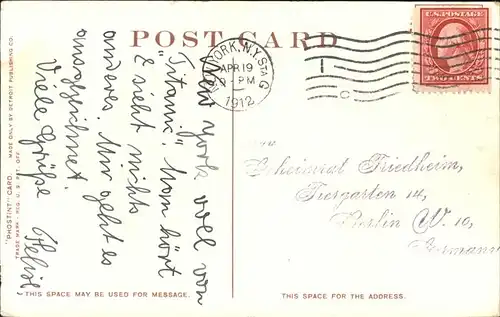 POST CARD
U.S. POSTAGE
TWO CENTS
NEW YORK, N.Y. STA G
APR 19
PM
1912
New York voll von
"Titanic". Man hört
& sieht nichts
anderes. Mir geht es
ausgezeichnet.
Viele Grüße
An
Geheimrat Friedheim,
Tiergarten 14,
Berlin W. 10,
Germany
"PHOSTINT" CARD. MADE ONLY BY DETROIT PUBLISHING CO.
TRADE MARK, REG. U.S. PAT. OFF.
THIS SPACE MAY BE USED FOR MESSAGE.
THIS SPACE IS FOR THE ADDRESS.